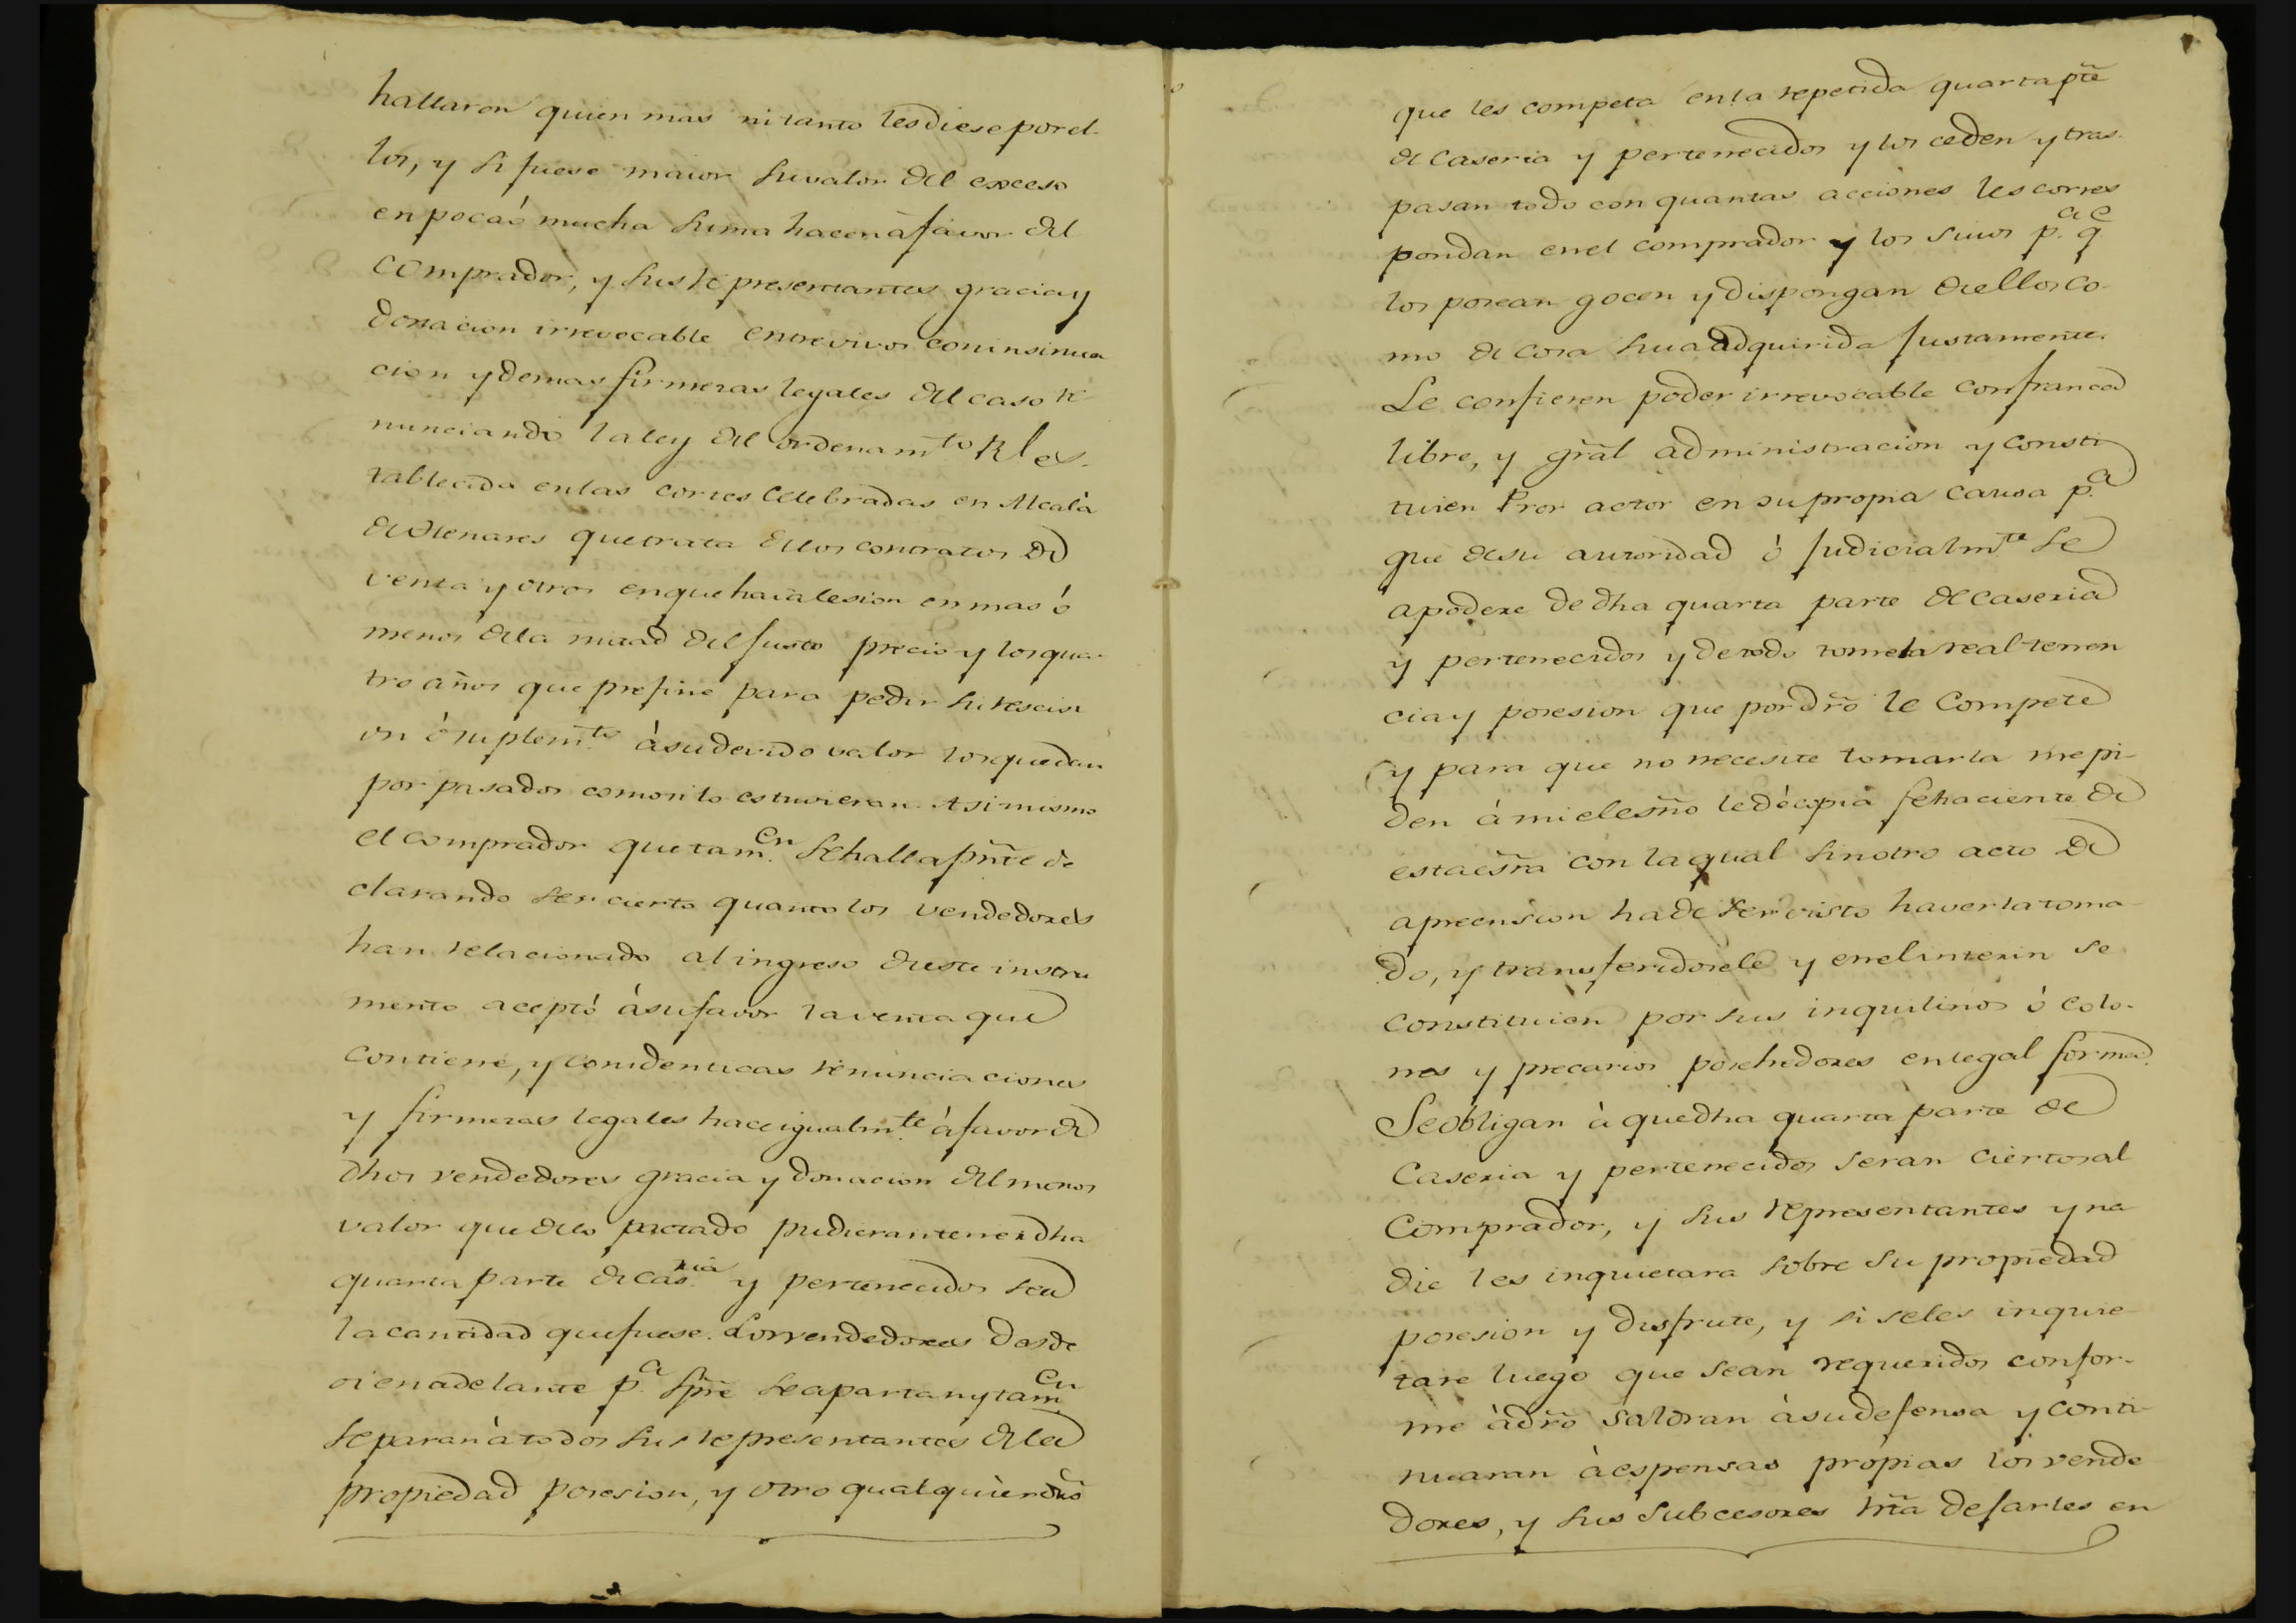 hallaron quien mas ni tanto les diese por el-
los, y si fuese maior su valor del exceso
en poca ó mucha suma hacen á favor del
comprador, y sus representantes gracia y
donacion irrevocable entre vivos con insinua
cion y demas firmezas legales del caso re-
nunciando la ley del ordenam.to Rl es-
tablecida en las cortes celebradas en Alcalá
de Henares que trata de los contratos de
venta y otros en que haia lesion en mas ó
menos de la mitad del justo precio y los qua-
tro años que prefine para pedir su rescisi
on ó suplem.to á su devido valor los que dan
por pasados como si lo estuvieran. Asi mismo
el comprador que tam.en se halla pñte de
clarando ser cierto quanto los vendedores
han relacionado al ingreso de este instru
mento aceptó á su favor la venta que
contiene, y con identicas renunciaciones
y firmezas legales hace igualm.te á favor de
dhos vendedores gracia y donacion del menos
valor que de lo pactado pudieran tener dha
quarta parte de cas.ria y pertenecidos sea
la cantidad que fuese. Los vendedores desde
oi en adelante p.a spre se apartan y tam.en
separan á todos sus representantes de la
propiedad posesion, y otro qualquier dro
que les competa en la repetida quarta pte
de Caseria y pertenecidos y los ceden y tras-
pasan todo con quantas acciones les corres
pondan en el comprador y los suios p.a q.e
los posean gocen y dispongan de ellos co-
mo de cosa sua adquirida justamente.
Le confieren poder irrevocable con franca
libre, y gral administracion y consti
tuien Pror actor en su propia causa p.a
que de su autoridad ó judicialm.te se
apodere de dha quarta parte de caseria
y pertenecidos y de todo tome la real tenen
cia y posesion que por dro le compete
y para que no necesite tomarla me pi-
den á mi el esño le dé copia fehaciente de
esta esra con la qual sin otro acto de
apreension ha de ser visto haverla toma-
do, y transferidosele y en el interin se
constituien por sus inquilinos ó colo-
nos y precarios posehedores en legal forma.
Se obligan á que dha quarta parte de
Caseria y pertenecidos seran ciertos al
Comprador, y sus representantes y na
die les inquietara sobre su propiedad
posesion y disfrute, y si se les inquie-
tare luego que sean requeridos confor-
me á dro saldran á su defensa y conti-
nuaran á espensas propias los vende
dores, y sus subcesores hta dejarles en